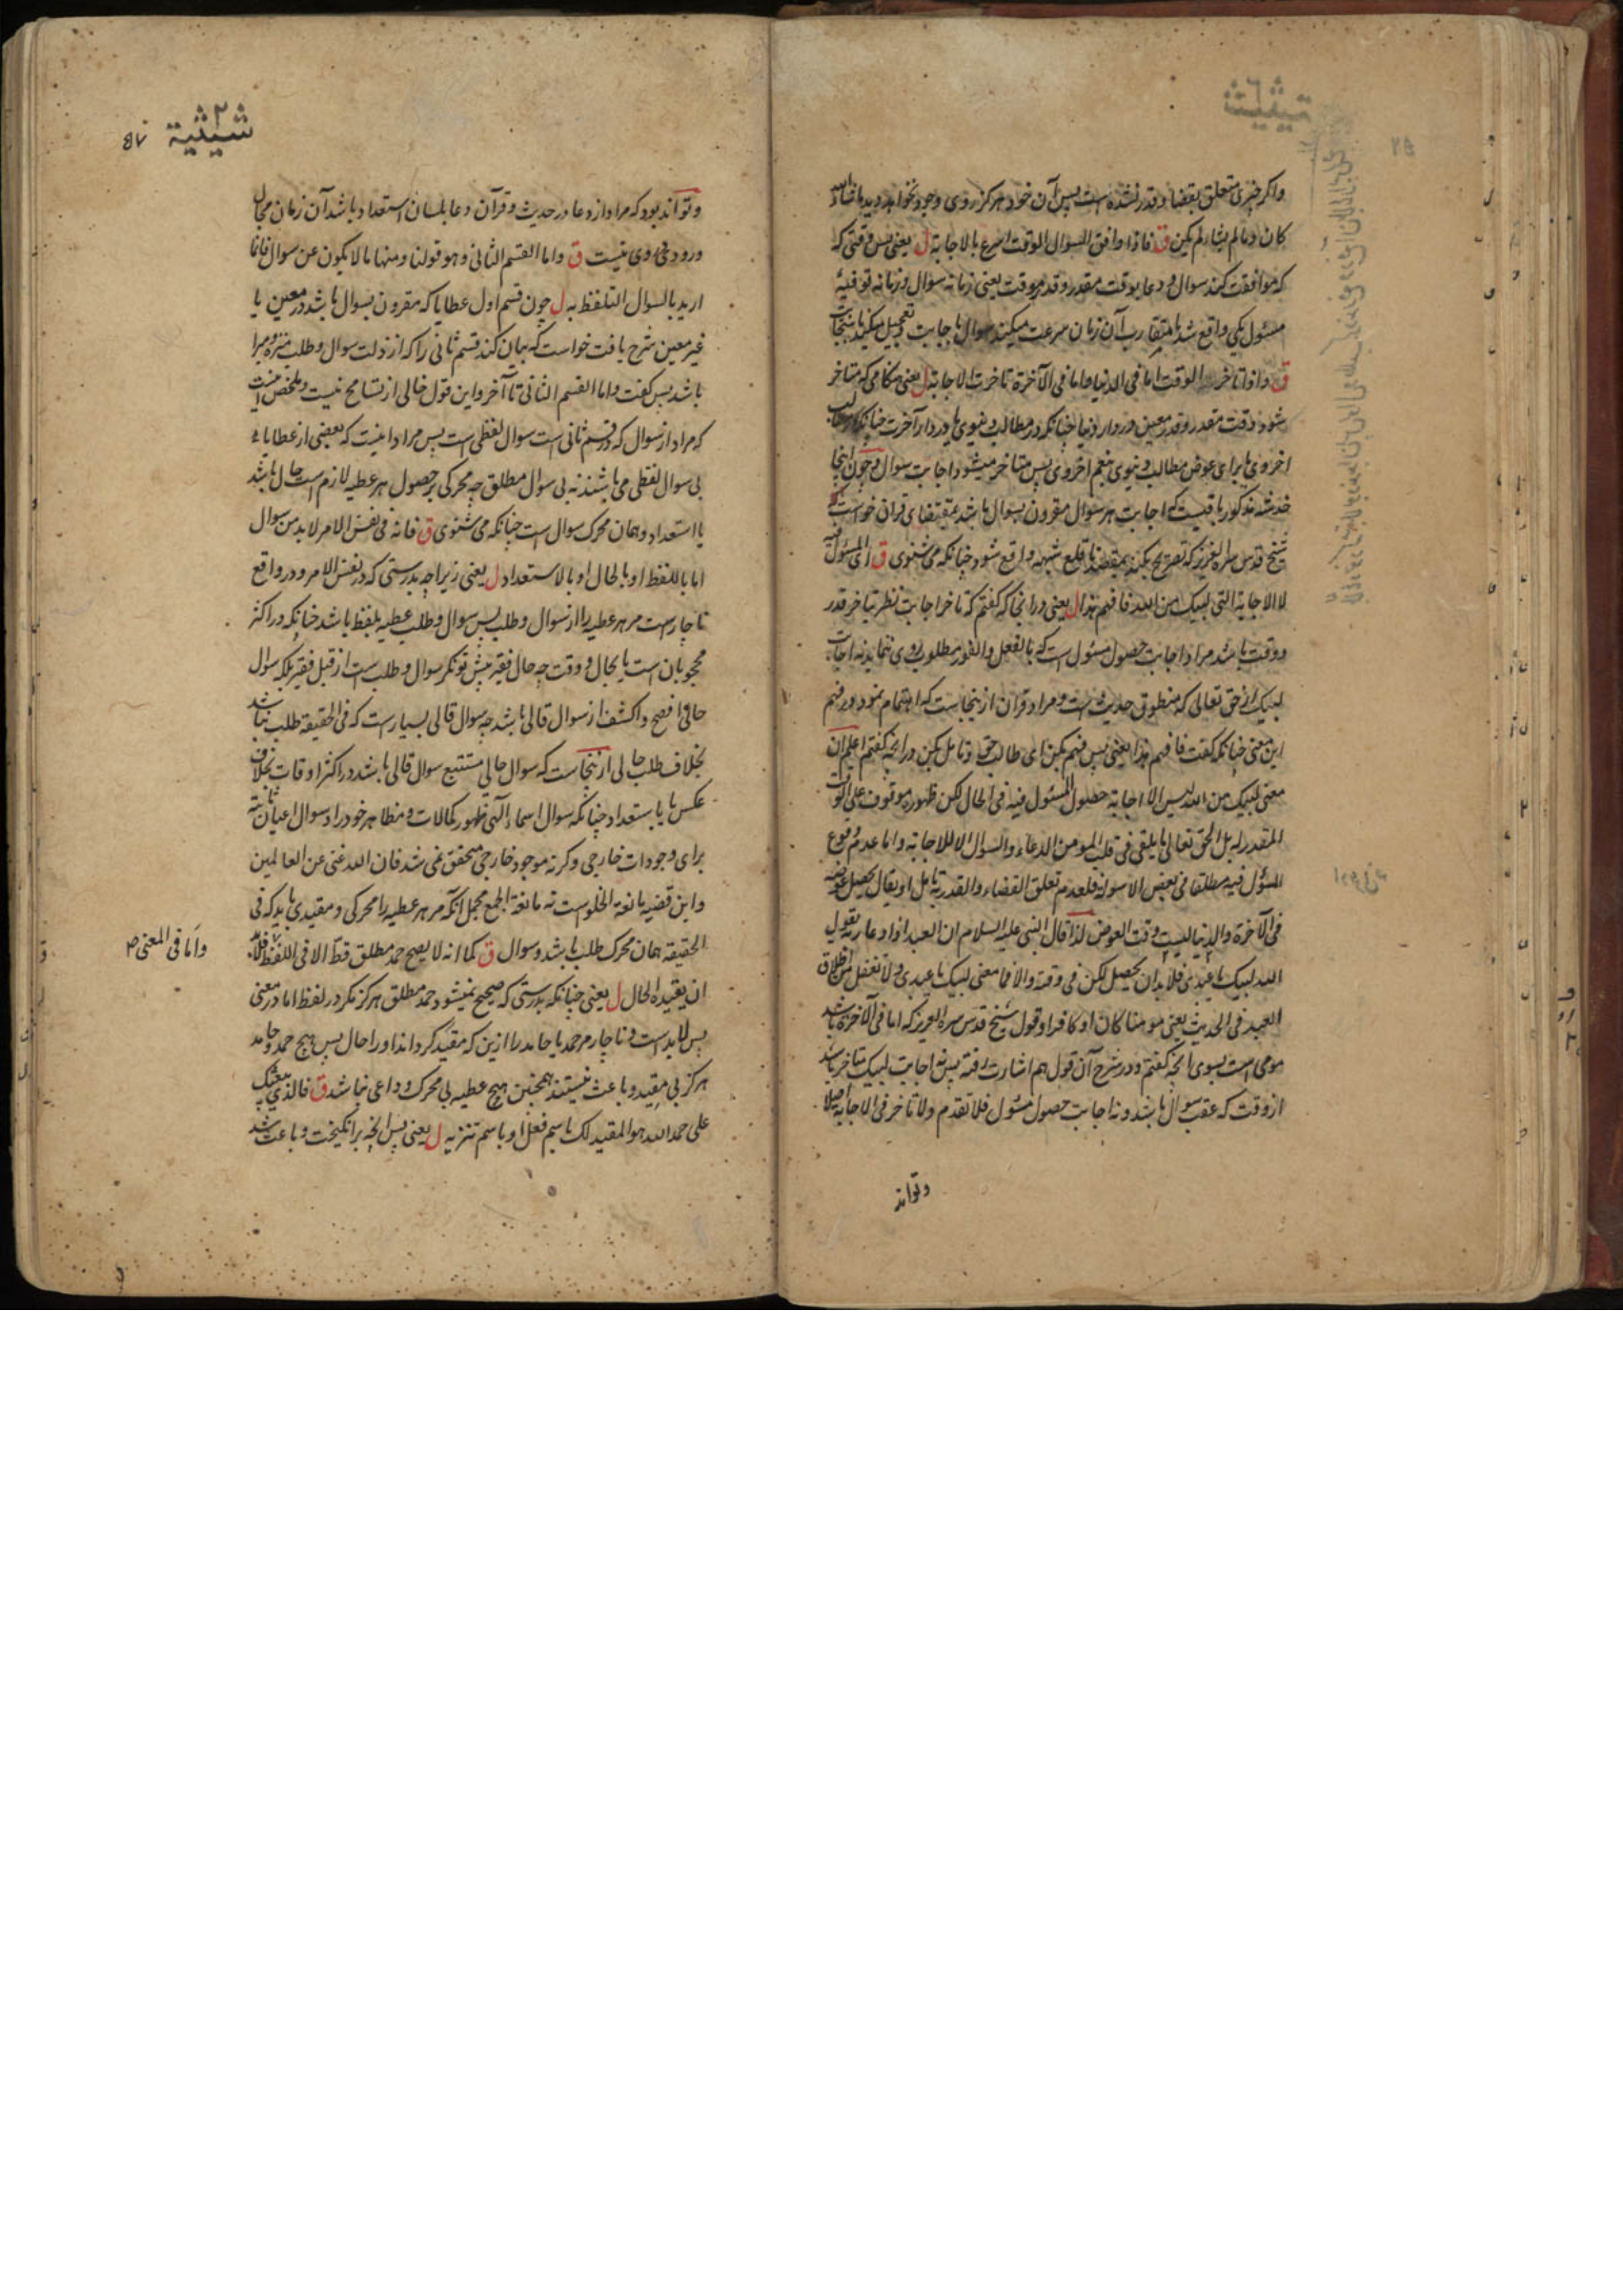 واکر چیزی متعلق بقضا و قدر نشده است پس آن خود هرکز روی وجود نخواهد دید ماشاء الله
کان و مالم یشا لم یکن ق فاذا وافق السوال الوقت اسرع بالاجابة ل یعنی پس وقتی که
که موافقت کند سوال و دعا بوقت مقدر و قدر موقت یعنی زمانه سوال و زمانه توقیه
مسئول یکی واقع شد یا متقارب آن زمان سرعت میکند سوال باجابت و تعجیل میکند
ق و اذا تاخر الوقت اما فی الدنیا و اما فی الآخرة تاخرت الاجابة ل یعنی هنکامی که متاخر
شود وقت مقدر و قدر معین در دار دنیا چنانکه در مطالب دنیوی یا در دار آخرت چنانکه در مطالب
اخروی یا برای عوض مطالب دنیوی نعم اخروی پس متاخر میشود اجابت سوال و چون اینجا
خدشه مذکور باقیست که اجابت هر سوال مقرون بسوال باشد بمقتضای قرآن خواست که
شیخ قدس سره العزیز که تصریح بکند بمقصد تا قلع شبهه واقع شود چنانکه می شنوی ق ای المسئول فیه
لا الاجابة التی لبیک من الله فافهم هذا ل یعنی در آنجا که کفتم که تاخر اجابت نظر بتاخر قدر
و وقت باشد مراد اجابت حصول مسئول است که بالفعل و الفور مطلوب روی ننماید نه اجابت
لبیک از حق تعالی که منطوق حدیث است و مراد قرآن از ینجاست که اهتمام نمود در فهم
این معنی چنانکه کفت فافهم هذا یعنی پس فهم بکن ای طالب حق و تامل بکن در آنچه کفتم اعلم ان
معنی لبیک من الله لیس الا اجابة حصول المسئول فیه فی الحال لکن ظهوره موقوف علی الوقت
المقدر له بل الحق تعالی ما یلقی فی قلب المومن الدعاء والسوال الا للاجابة واما عدم وقوع
المسؤل فیه مطلقا فی بعض الاسولة فلعدم تعلق القضاء والقدر به تامل او یقال یحصل عوضه
فی الآخرة والدنیا لیست وقت العوض لذا قال النبی علیه السلام ان العبد اذا دعا ربه یقول
الله لبیک یا عبدی فلا بد ان یحصل لکن فی وقته والا فما معنی لبیک یا عبدی ولا تغفل من اطلاق
العبد فی الحدیث یعنی مومنا کان او کافرا و قول شیخ قدس سره العزیز که اما فی الآخرة باشد
مومی است بسوی آنچه کفتم و در شرح آن قول هم اشارت رفته پس نه اجابت لبیک متاخر باشد
از وقت که عقب سوال باشد و نه اجابت حصول مسئول فلا تقدم ولا تاخر فی الاجابة اصلا
وتواند
شیثیة
۵۷
وتواند بود که مراد از دعا در حدیث و قرآن دعا بلسان استعداد باشد آن زمان مجال
ورود فی وی نیست ق واما القسم الثانی وهو قولنا ومنها ما لا یکون عن سوال فانما
ارید بالسوال التلفظ به ل چون قسم اول عطایا که مقرون بسوال باشد در معین یا
غیر معین شرح یافت خواست که بیان کند قسم ثانی را که از ذلت سوال و طلب منزه و مبرا
باشد پس کفت واما القسم الثانی تا آخر و این قول خالی از تسامح نیست و ملخص اینست
که مراد از سوال که در قسم ثانی است سوال لفظی است پس مراد اینست که بعضی از عطایا
بی سوال لفظی می باشند نه بی سوال مطلق چه محرکی بر حصول هر عطیه لازم است حال باشد
یا استعداد و همان محرک سوال است چنانکه می شنوی ق فانه فی نفس الامر لا بد من سوال
اما باللفظ او بالحال او بالاستعداد ل یعنی زیرا چه بدرستی که در نفس الامر و در واقع
ناچارست مر هر عطیه را از سوال و طلب پس سوال و طلب عطیه بلفظ باشد چنانکه در اکثر
محجوبان است یا بحال و وقت چه حال فقیر پیش تونکر سوال و طلب است از قبل فقیر بلکه سوال
حالی افصح و اکشف از سوال قالی باشد چه سوال قالی بسیارست که فی الحقیقة طلب نباشد
بخلاف طلب حالی از ینجاست که سوال حالی مستتبع سوال قالی باشد در اکثر اوقات بخلاف
عکس یا باستعداد چنانکه سوال اسماء الهی ظهور کمالات و مظاهر خود را و سوال اعیان ثابته
برای وجودات خارجی و کرنه موجود خارجی متحقق نمی شد فان الله غنی عن العالمین
و این قضیه مانعة الخلوست نه مانعة الجمع مجمل آنکه مر هر عطیه را محرکی و مقیدی باید که فی
الحقیقة همان محرک طلب باشد و سوال ق کما انه لا یصح حمد مطلق قط الا فی اللفظ فلا بد
واما فی المعنی ص
ان یقیده الحال ل یعنی چنانکه بدرستی که صحیح نمیشود حمد مطلق هرکز مکر در لفظ اما در معنی
پس لا بد است و ناچار مر حمد یا حامد را ازین که مقید کرداند او را حال پس هیچ حمد و حامد
هرکز بی مقید و باعث نیستند همچنین هیچ عطیه بی محرک و داعی نباشد ق فالذی یبعثک
علی حمد الله هو المقید لک باسم فعل او باسم تنزیه ل یعنی پس آنچه برانکیخت و باعث شد